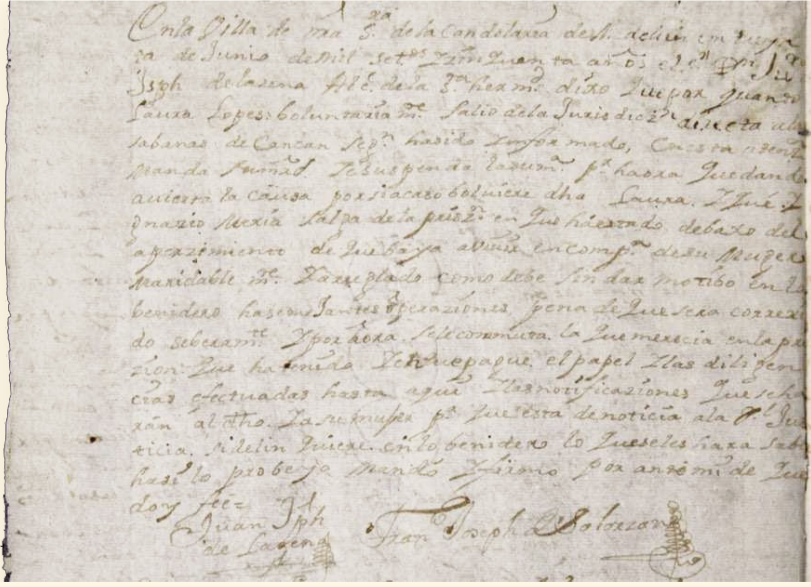 En la Villa de nra Sra de la Candelaria de Medellin en
ta de Junio de Mil setes Zinquenta años el Sr Dn Jun
Jsph de lasena Alce de la Sta hermd dixo Que por quanto
Laura Lopes boluntariamte salio de la Jurisdizn a las
sabanas de Cancan segn ha sido Informado, en esta atenn
Manda sumd se suspenda la sumra pr haora quedando
avierta la causa por si acaso bolviere dha Laura. Y que Y
gnazio Mexia salga de la prizn en que ha estado debaxo del
aperzimiento de que baya a vivir en compa de su Muger
Maridable mte Y arreglado como debe sin dar motibo en lo
benidero hasemejantes operaziones pena de que sera correxi
do seberamte Y por aora se le conmuta la que merecia en la pri
zion que ha tenido Y en que pague el papel Y las diligen
cias efectuadas hasta aqui Y las notificaziones que se ha
rán al dho. Y a su muger pa que esta de noticia a la Rl Jus
ticia. si delinquiere en lo benidero lo que se les hara saber
hasi lo probeyo Mando Y firmo por ante mi de que
doy fee=
Juan Jph
de Lasena
Franco Joseph de Solorzano